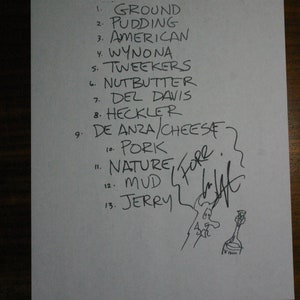 1. GROUND
2. PUDDING
3. AMERICAN
4. WYNONA
5. TWEEKERS
6. NUTBUTTER
7. DEL DAVIS
8. HECKLER
9. DE ANZA/CHEESE
10. PORK
11. NATURE
12. MUD
13. JERRY